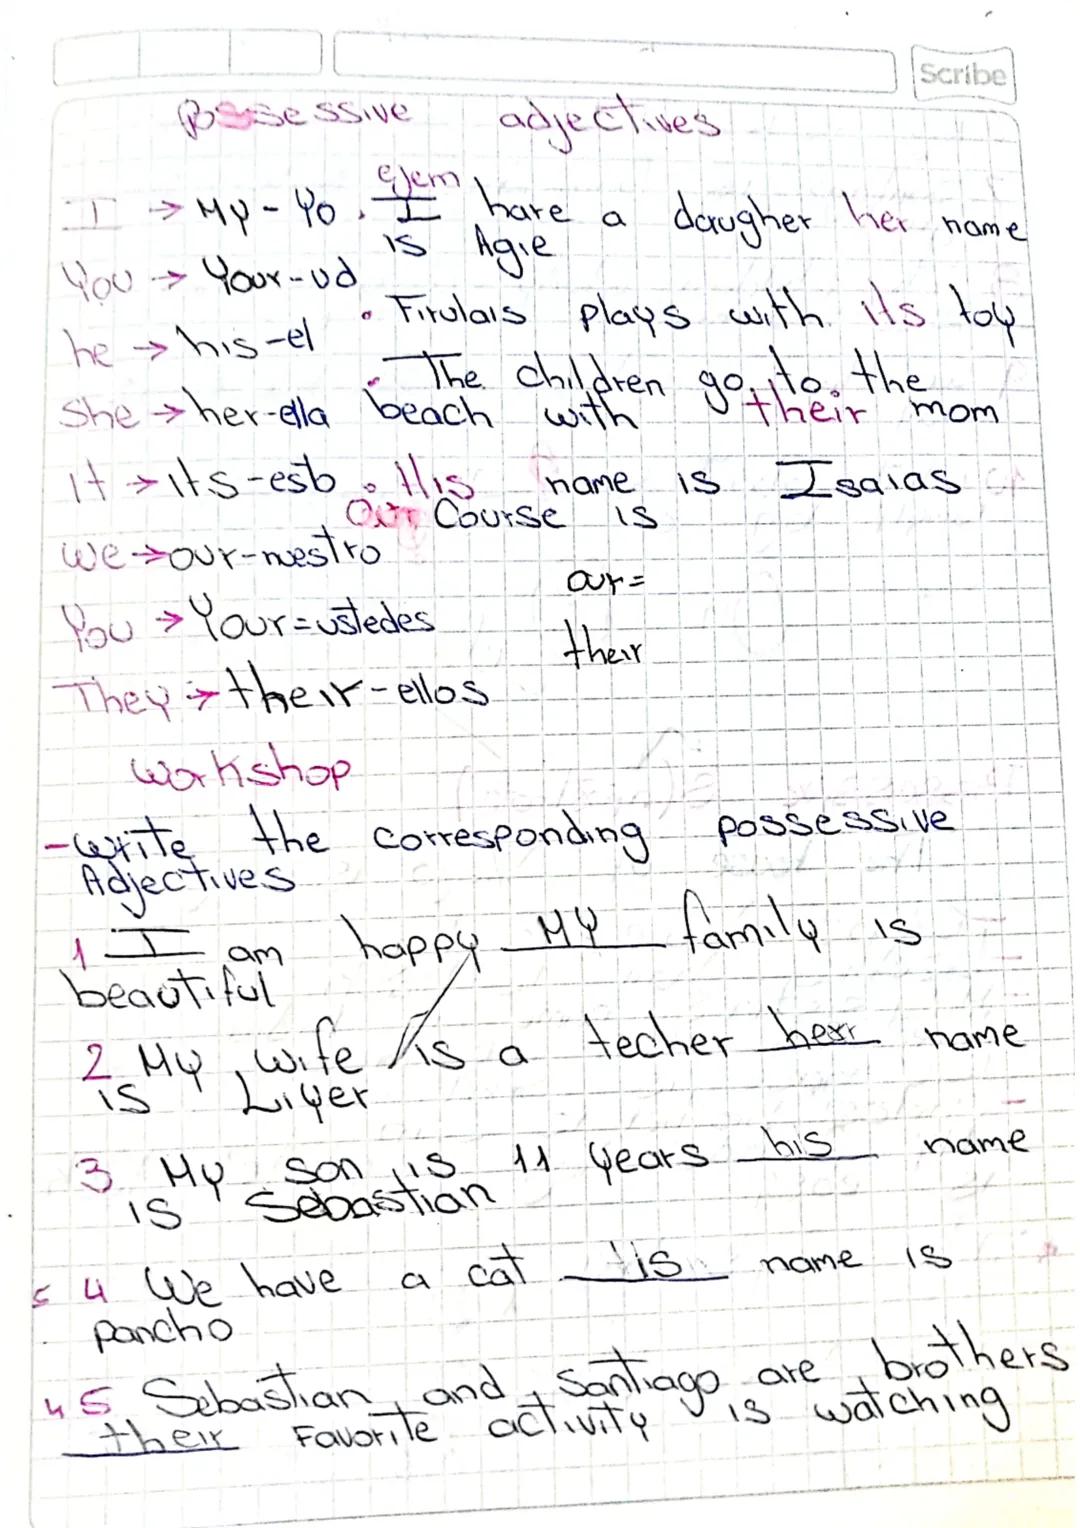 Scribe
possessive adjectives
ejem
I → My - Yo . I have a daugher her name
is Agie
You → Your - ud
• Firulais plays with its toy
he → his - el
• The children go to the
She → her - ella beach with their mom
It → its - esto • His name is Isaias
Our Course is
we → our - nuestro
our=
You → Your = ustedes
their
They → their - ellos
workshop
- write the corresponding possessive
Adjectives
1 I am happy My family is
beautiful
2 My wife is a techer her name
is Liyer
3 My son is 11 years his name
is Sebastian
5 4 We have a cat name is
pancho
4 5 Sebastian and Santiago are brothers
their Favorite activity is watching